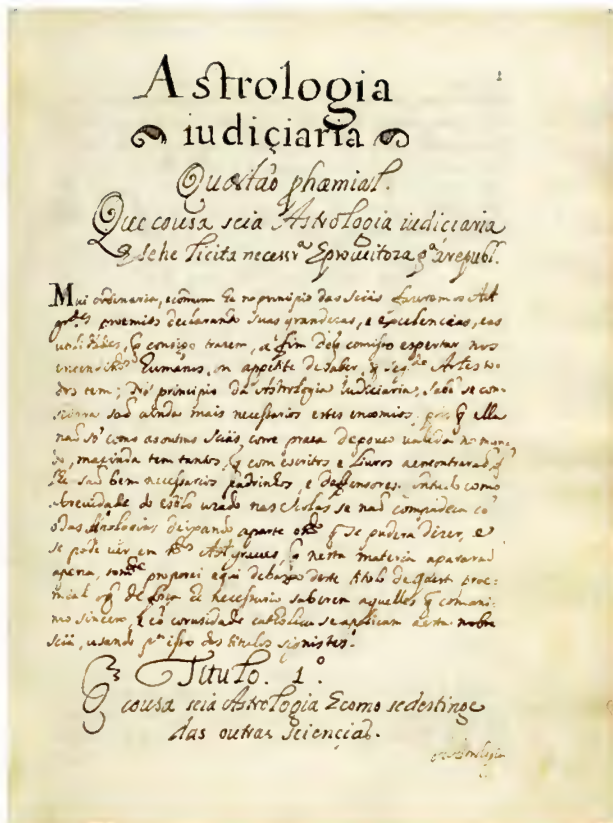 Astrologia
iudiçiaria
Questaõ phæmial.
Que cousa seia Astrologia iudiciaria
E se he licita necessr.ª E proueitoza p.ª á republ.
Mui ordinario, e comum he no principio das sciãs fazerem os Aut
proemios declarando suas grandezas, e excelencias, e as
utilidades, q̃ consigo trazem, a fim de cõ isso espertar nos
entendim.tos humanos, o appetite de saber, q̃
dos tem; No principio da Astrologia Iudiciaria, se
saõ ainda mais necessarios estes encomios, pois q̃ ella
naõ só como as outras sciãs, corre praça de pouco ualida no mun
do, mas ainda tem tantos, q̃ com escritos e liuros a encontraraõ, q̃
lhe saõ bem necessarios padrinhos, e defensores. como
a breuidade do estilo uzado nas escolas se naõ compadeça cõ
deixando aparte q̃ se pudera dizer, e
se pode uer, em graues, q̃ nesta materia apararaõ
a pena, proporei aqui debaxo deste titolo de proe-
mial he necessario saberem aquelles q̃ com ani-
mo sincero, e cõ curiosidade catholica se aplicam a esta nobre
sciã, usando p.ª isso dos titulos
Titulo. 1º.
Q̃ cousa seia Astrologia E como se destinge
das outras scienciaˢ.